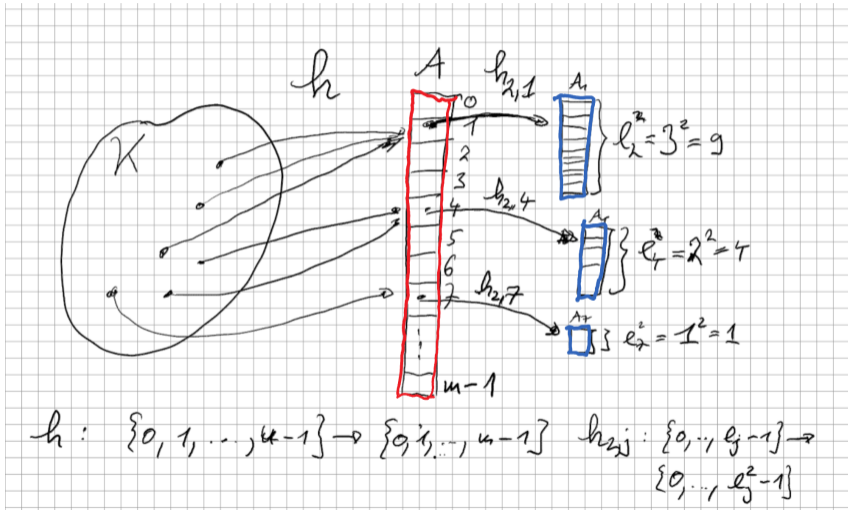 h A h₂,₁ A₁
K
0
1
2
3
4
5
6
7
m-1
ℓ₂² = 3² = 9
h₂,₄ A₄
ℓ₄² = 2² = 4
h₂,₇ A₇
ℓ₇² = 1² = 1
h : {0, 1, ..., u-1} → {0, 1, .., m-1} h₂,j : {0, .., ℓj-1} →
{0, .., ℓj²-1}